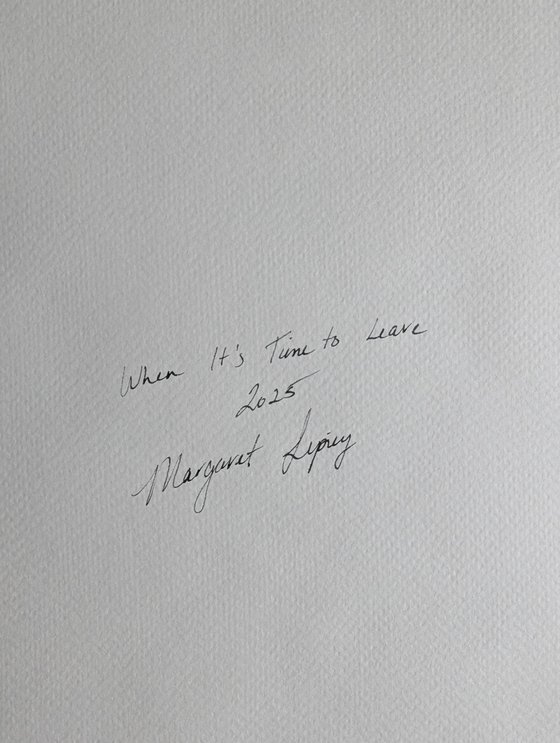 When It's Time to Leave
2025
Margaret Lipsey